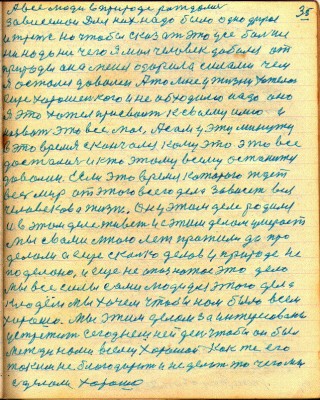 35
А все люди в природе рождены
зависимой Для них надо было одно другое
и третье но чтобы сказать это где был не
не надо не чего Я мол человек добился от
природы она меня одарила силами чем
Я остался доволен А то мне и жизни хотелось
еще хорошего и необходимо надо оно
Я это хотел присвоить к своему имю и
назвать это все мое, А сам у эту минуту
в это время скончался кому это это все
досталась и кто этому всему остался
доволен. Если это время которого ждет
весь мир от этого всего дела зависит вся
человекова жизнь. Он у этом деле родился
и в этом деле живет и с этим делом умирает
Мы с вами много лет прожили да про
делали а еще сколько делов у природе не
поделано, и еще не опознатое это дело
Мы все силы свои молодые этого дела
кладем мы хочем чтобы нам было всем
хорошо. Мы этим делом заинтересованы
встретить сегодняшней день чтобы он был
между нами всеми хороший Как же его
таким не благодарить и не делать то чего мы
сделали хорошо